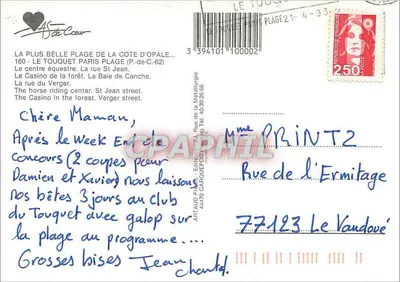 45 de Cœur
LA PLUS BELLE PLAGE DE LA COTE D'OPALE...
160 - LE TOUQUET PARIS PLAGE (P.-de-C. 62)
Le centre équestre. La rue St Jean.
Le Casino de la forêt. La Baie de Canche.
La rue du Verger.
The horse riding center. St Jean street.
The Casino in the forest. Verger street.
3 394101 100002
LE TOUQUET
PLAGE 21-4-93
2,50
Chère Maman,
Après le Week End de
concours (2 coupes pour
Damien et Xavier) nous laissons
nos bêtes 3 jours au club
du Touquet avec galop sur
la plage au programme....
Grosses bises Jean
Chantal.
Rue de la Métallurgie
44470 CARQUEFOU
Mme PRINTZ
Rue de l'Ermitage
77123 Le Vaudoué
CPAPHIL